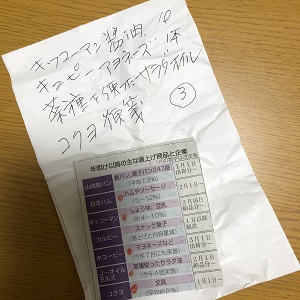 キッコーマン醤油 10
キューピーマヨネーズ 1本
菜種を使ったサラダオイル
コクヨ 便箋
③
年明け以降の主な値上げ商品と企業
山崎製パン 食パン、菓子パン247品 (平均7.3%) 1月1日
日本ハム ハムやソーセージ (5〜12%) 2月1日
キッコーマン しょうゆ、豆乳 (約4〜10%) 2月16日納品分〜
カルビー スナック菓子 1月以降順次
キユーピー マヨネーズなど 3月1日
J-オイルミルズ 菜種使ったサラダ油 (今年4回実施) 2月1日納品分〜
コクヨ 文具 1月1日〜